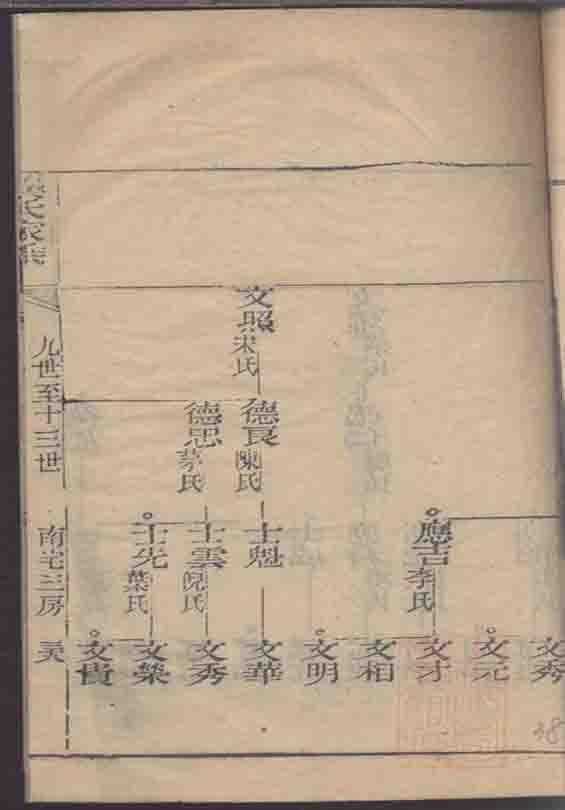 文照 宋氏
德良 陳氏
德忠 茅氏
應吉 李氏
士魁
士雲 倪氏
士先 葉氏
文秀
文元
文才
文相
文明
文華
文秀
文榮
文貴
氏家譜
九世至十三世
南宅三房
38